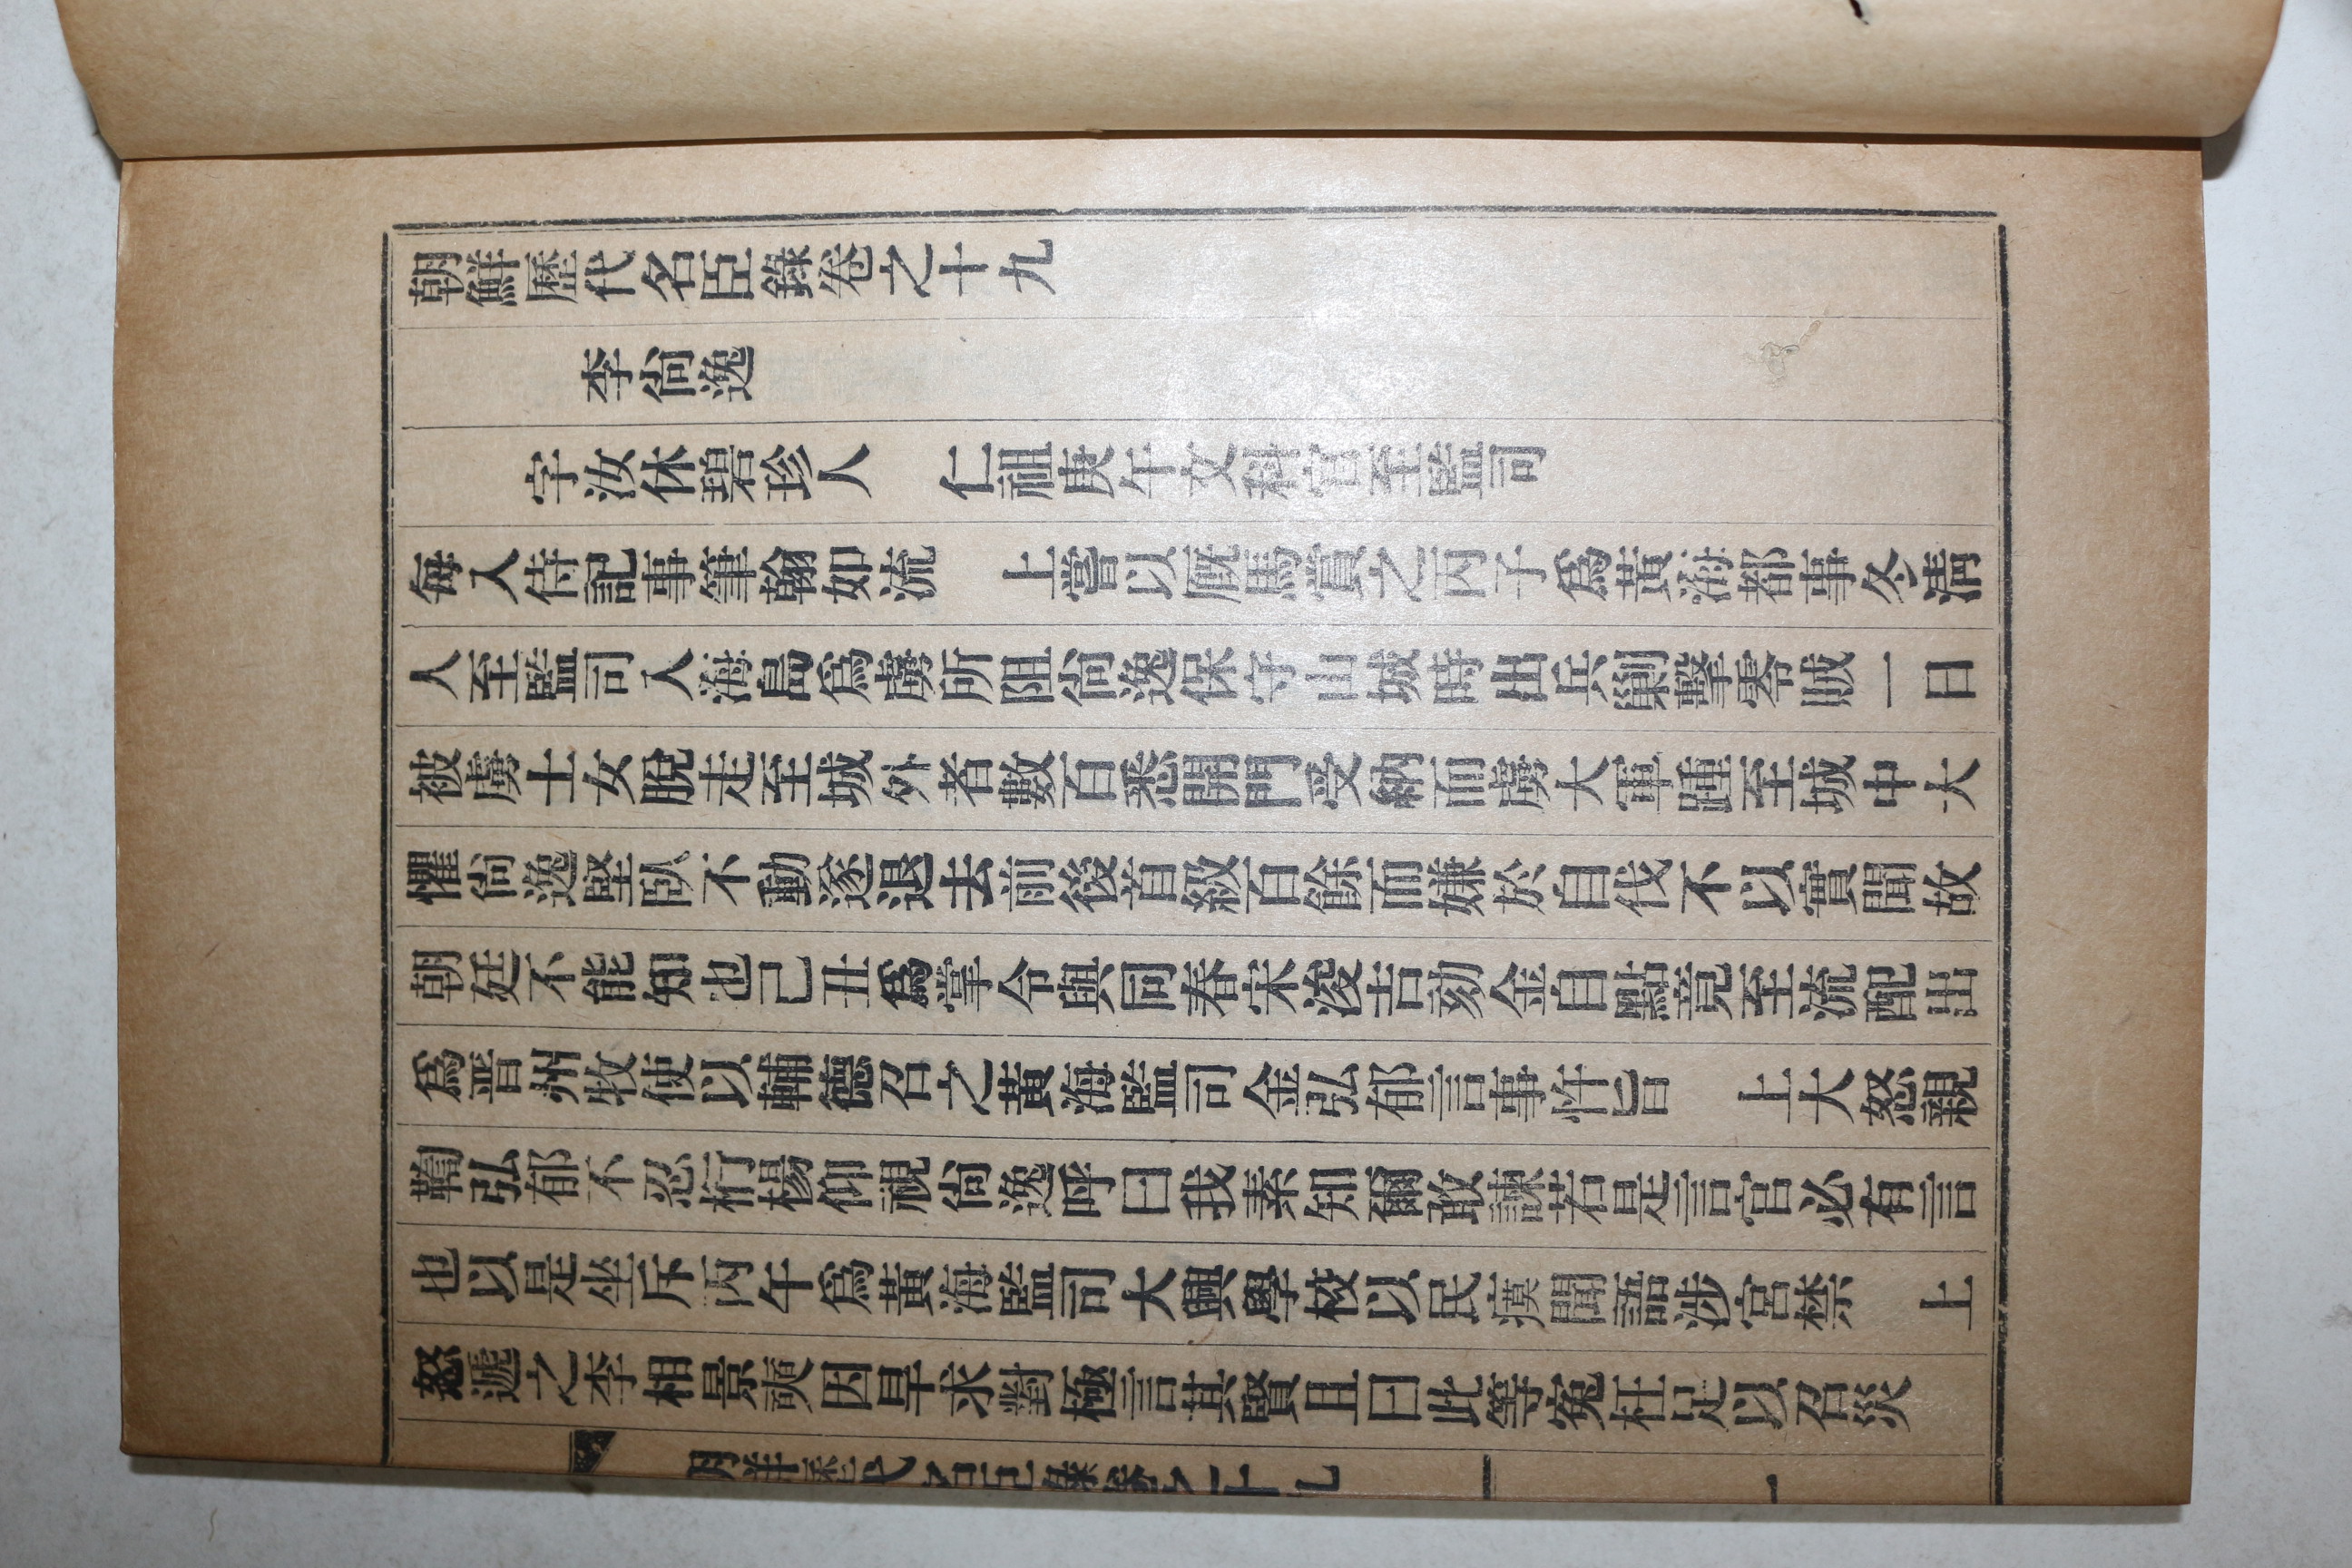 朝鮮歷代名臣錄卷之十九
李尙逸
字汝休碧珍人 仁祖庚午文科官至監司
每入侍記事筆翰如流 上嘗以廐馬賞之丙子爲黃海都事冬淸
人至監司入海島爲虜所阻尙逸保守山城時出兵剿擊零賊一日
被虜士女脫走至城外者數百悉開門受納而虜大軍踵至城中大
懼尙逸堅臥不動遂退去前後首級百餘而嫌於自伐不以實聞故
朝廷不能知也己丑爲掌令與同春宋浚吉劾金自點竟至流配出
爲晋州牧使以輔德召之黃海監司金弘郁言事忤旨 上大怒親
鞫弘郁不忍桁楊仰視尙逸呼曰我素知爾敢諫若是言官必有言
也以是坐斥丙午爲黃海監司大興學校以民瘼聞語涉宮禁 上
怒遞之李相景奭因旱求對極言其賢且曰此等寃枉足以召災
朝鮮歷代名臣錄卷之十九 一